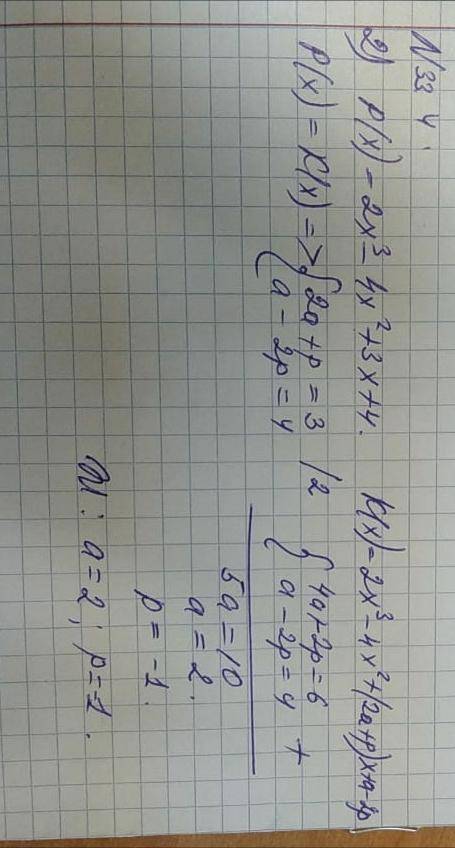 N334.
2) P(x) = 2x³ - 4x² + 3x + 4. K(x) = 2x³ - 4x² + (2a+p)x + a - 2p
P(x) = K(x) => { 2a + p = 3 /2 { 4a + 2p = 6
a - 2p = 4 a - 2p = 4 +
5a = 10
a = 2.
p = -1.
: a = 2; p = -1.